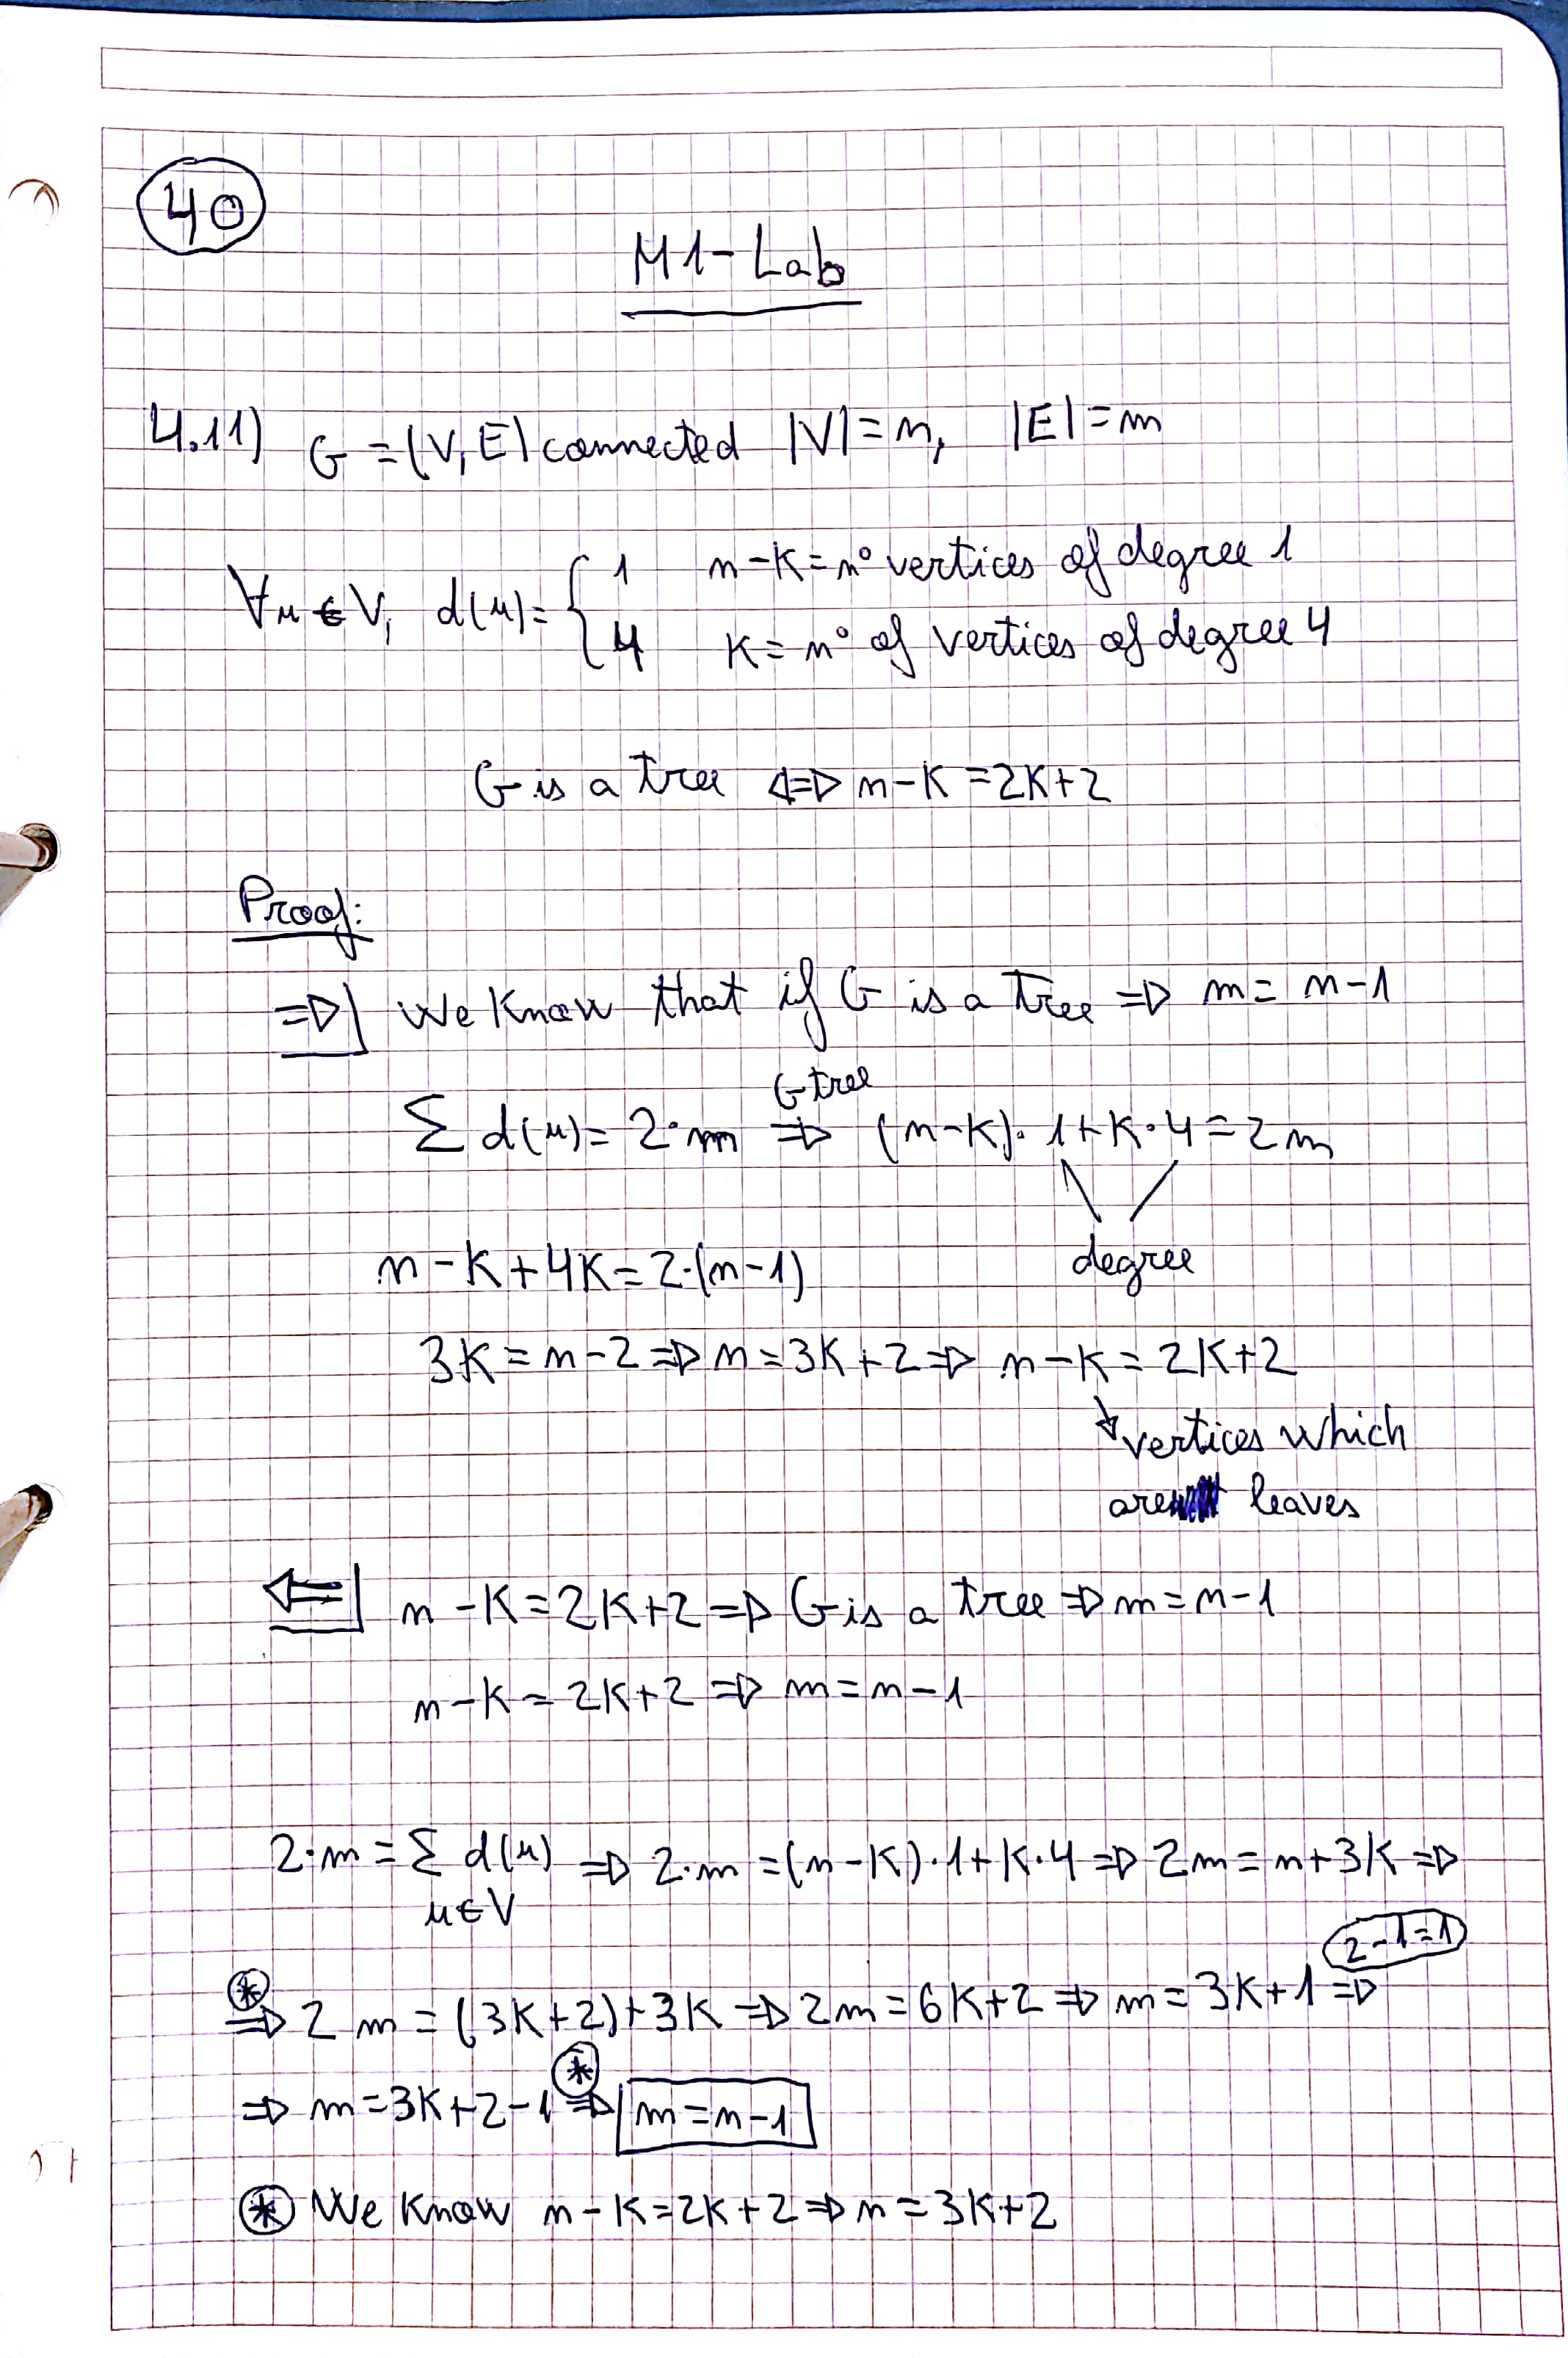 40
M1-Lab
4.11) G = (V, E) connected |V| = n, |E| = m
∀u ∈ V, d(u) = { 1 n-K = nº vertices of degree 1
4 K = nº of vertices of degree 4
G is a tree ⇔ n-K = 2K+2
Proof:
⇒| We know that if G is a tree ⇒ m = n-1
G tree
Σ d(u) = 2·m ⇒ (n-K)·1+K·4 = 2m
degree
n-K+4K = 2·(n-1)
3K = n-2 ⇒ n = 3K+2 ⇒ n-K = 2K+2
↳ vertices which
are leaves
⇐| n-K = 2K+2 ⇒ G is a tree ⇒ m = n-1
n-K = 2K+2 ⇒ m = n-1
2·m = Σ d(u) ⇒ 2·m = (n-K)·1+K·4 ⇒ 2m = n+3K ⇒
u∈V
2-1=1
⊛ ⇒ 2m = (3K+2)+3K ⇒ 2m = 6K+2 ⇒ m = 3K+1 ⇒
⇒ m = 3K+2-1 ⊛ ⇒ m = n-1
⊛ We know n-K = 2K+2 ⇒ n = 3K+2